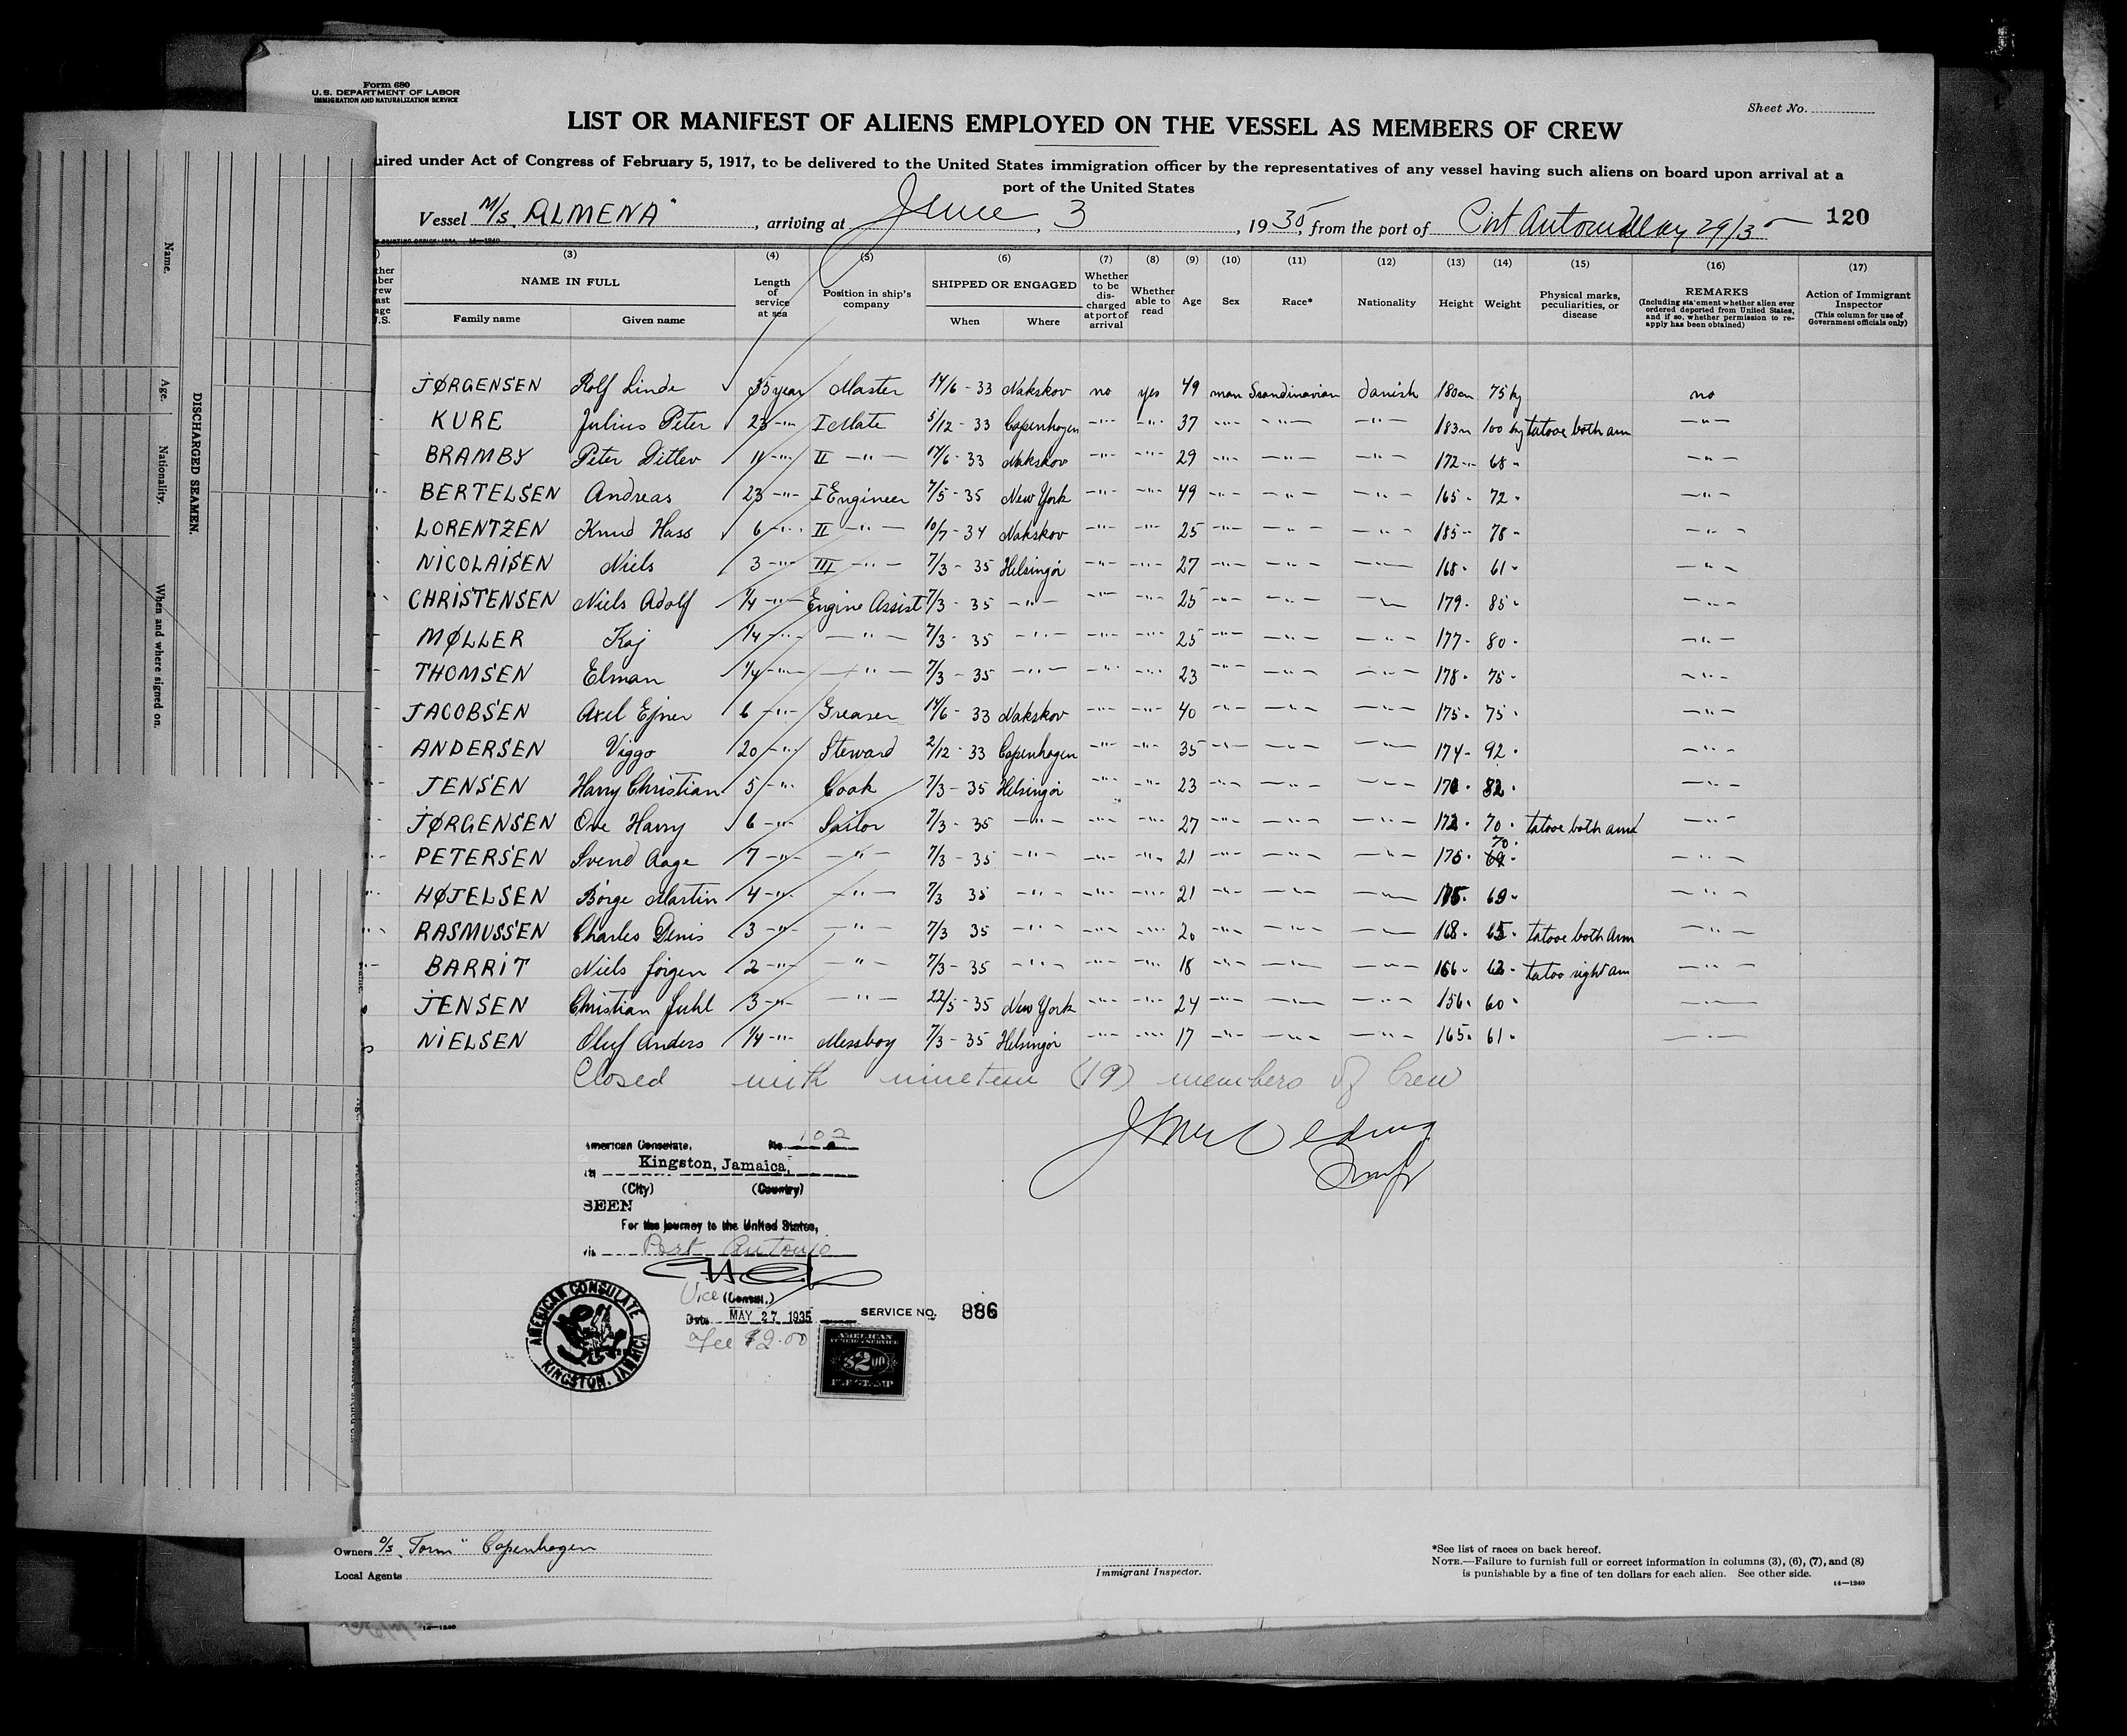 Form 680
U. S. DEPARTMENT OF LABOR
IMMIGRATION AND NATURALIZATION SERVICE
Sheet No.
LIST OR MANIFEST OF ALIENS EMPLOYED ON THE VESSEL AS MEMBERS OF CREW
uired under Act of Congress of February 5, 1917, to be delivered to the United States immigration officer by the representatives of any vessel having such aliens on board upon arrival at a
port of the United States
Vessel M/S. "ALMENA" , arriving at June 3 , 1935, from the port of Port Antonio May 29/35 120
(3) (4) (5) (6) (7) (8) (9) (10) (11) (12) (13) (14) (15) (16) (17)
NAME IN FULL Length of service at sea Position in ship's company SHIPPED OR ENGAGED Whether to be discharged at port of arrival Whether able to read Age Sex Race* Nationality Height Weight Physical marks, peculiarities, or disease REMARKS (Including statement whether alien ever ordered deported from United States, and if so, whether permission to re-apply has been obtained) Action of Immigrant Inspector (This column for use of Government officials only)
Family name Given name When Where
JØRGENSEN Rolf Linde 35 year Master 14/6 - 33 Nakskov no yes 49 man Scandinavian danish 180 cm 75 kg no
KURE Julius Peter 23 -"- I Mate 5/12 - 33 Copenhagen -"- -"- 37 -"- -"- -"- 183 " 100 kg tatove both arm -"-
BRAMBY Peter Ditlev 11 -"- II -"- 14/6 - 33 Nakskov -"- -"- 29 -"- -"- -"- 172 -"- 68 " -"-
BERTELSEN Andreas 23 -"- I Engineer 7/5 - 35 New York -"- -"- 49 -"- -"- -"- 165 - 72 - -"-
LORENTZEN Knud Hass 6 -"- II -"- 10/7 - 34 Nakskov -"- -"- 25 -"- -"- -"- 185 - 78 - -"-
NICOLAISEN Niels 3 -"- III -"- 7/3 - 35 Helsingör -"- -"- 27 -"- -"- -"- 168 - 61 - -"-
CHRISTENSEN Niels Adolf 1/4 -"- Engine Assist 7/3 - 35 -"- -"- -"- 25 -"- -"- -"- 179 - 85 - -"-
MØLLER Kaj 1/4 -"- -"- 7/3 - 35 -"- -"- -"- 25 -"- -"- -"- 177 - 80 - -"-
THOMSEN Elman 1/4 -"- -"- 7/3 - 35 -"- -"- -"- 23 -"- -"- -"- 178 - 75 - -"-
JACOBSEN Axel Ejner 6 -"- Greaser 14/6 - 33 Nakskov -"- -"- 40 -"- -"- -"- 175 - 75 - -"-
ANDERSEN Viggo 20 -"- Steward 2/12 - 33 Copenhagen -"- -"- 35 -"- -"- -"- 174 - 92 - -"-
JENSEN Harry Christian 5 -"- Cook 7/3 - 35 Helsingör -"- -"- 23 -"- -"- -"- 82 - -"-
JØRGENSEN Ove Harry 6 -"- Sailor 7/3 - 35 -"- -"- -"- 27 -"- -"- -"- 172 - 70 - tatove both arm -"-
PETERSEN Svend Aage 7 -"- -"- 7/3 - 35 -"- -"- -"- 21 -"- -"- -"- 175 - 70 - -"-
HØJELSEN Börge Martin 4 -"- -"- 7/3 35 -"- -"- -"- 21 -"- -"- -"- 175 - 69 - -"-
RASMUSSEN Charles Denis 3 -"- -"- 7/3 35 -"- -"- -"- 20 -"- -"- -"- 168 - 65 - tatove both arm -"-
BARRIT Niels Jörgen 2 -"- -"- 7/3 - 35 -"- -"- -"- 18 -"- -"- -"- 166 - 62 - tatoo right arm -"-
JENSEN Christian Juhl 3 -"- -"- 22/5 - 35 New York -"- -"- 24 -"- -"- -"- 156 - 60 - -"-
NIELSEN Oluf Anders 1/4 -"- Messboy 7/3 - 35 Helsingör -"- -"- 17 -"- -"- -"- 165 - 61 - -"-
Closed with nineteen (19) members of Crew
American Consulate, No. 102
at Kingston, Jamaica,
(City) (Country)
SEEN
For the journey to the United States,
via Port Antonio
Vice (Consul.)
Date MAY 27 1935 SERVICE NO. 886
Fee $2.00
AMERICAN CONSULATE KINGSTON, JAMAICA
AMERICAN FOREIGN SERVICE $2.00 FEE STAMP
Owners D/S "Torm" Copenhagen
Local Agents
Immigrant Inspector.
*See list of races on back hereof.
NOTE.—Failure to furnish full or correct information in columns (3), (6), (7), and (8)
is punishable by a fine of ten dollars for each alien. See other side.
14—1240
DISCHARGED SEAMEN.
Name. Age. Nationality. When and where signed on.
14—1240